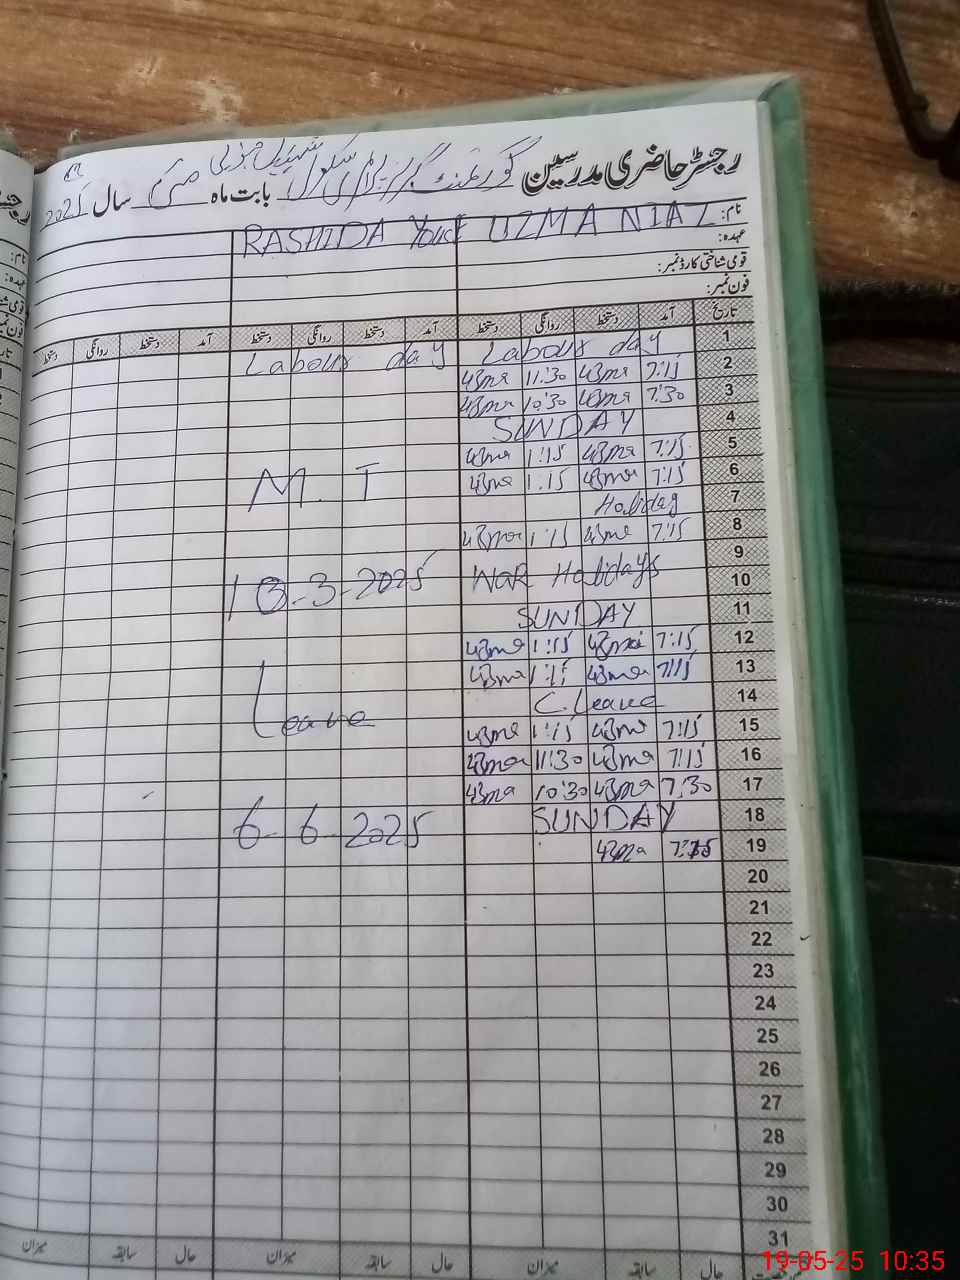 رجسٹر حاضری مدرسین گورنمنٹ گرلز پرائمری سکول بابت ماہ مئی سال 2025
نام: UZMA NIAZ RASHIDA Yousf
عہدہ:
قومی شناختی کارڈ نمبر:
فون نمبر:
تاریخ آمد دستخط روانگی دستخط آمد دستخط روانگی دستخط آمد دستخط روانگی دستخط
1 Labour day Labour day
2 7:15 11:30
3 7:30 10:30
4 SUNDAY
5 7:15 1:15
6 7:15 1:15 M. T
7 Holiday
8 7:15 1:15
9 WAR Holidays
10 13-3-2025
11 SUNDAY
12 7:15 1:15
13 7:15 1:15
14 C. Leave Leave
15 7:15 1:15
16 7:15 11:30
17 7:30 10:30
18 SUNDAY 6-6-2025
19 7:15
20
21
22
23
24
25
26
27
28
29
30
31
حال سابقہ میزان حال سابقہ میزان حال سابقہ میزان
19-05-25 10:35